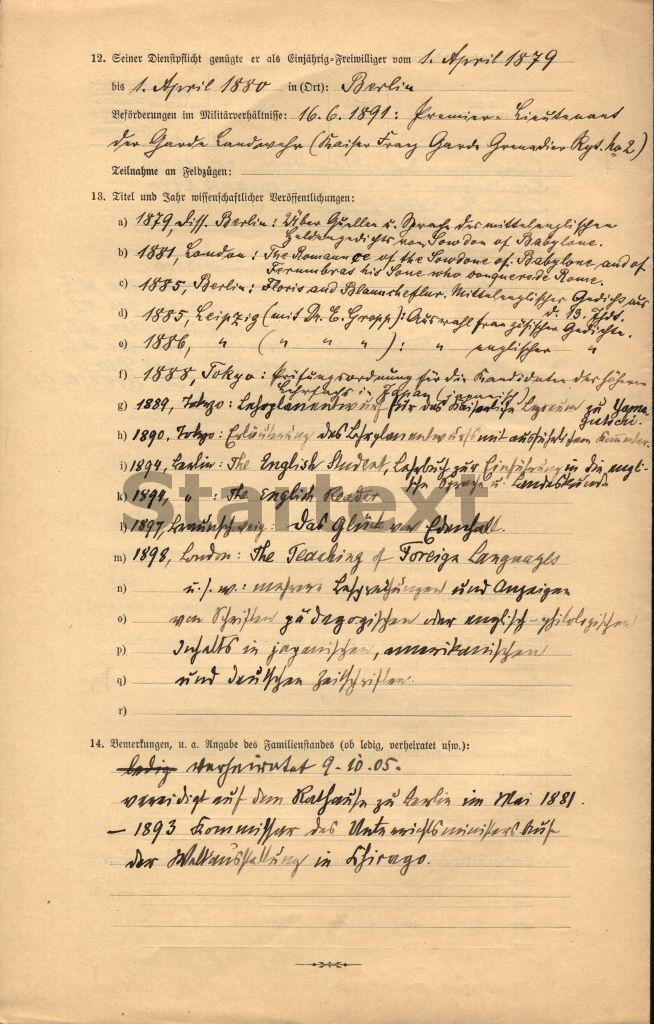 12. Seiner Dienstpflicht genügte er als Einjährig-Freiwilliger vom 1. April 1879
bis 1. April 1880 in (Ort): Berlin
Beförderungen im Militärverhältnisse: 16.6.1891: Premier-Lieutenant
der Garde Landwehr (Kaiser Franz Garde Grenadier Rgt. No 2)
Teilnahme an Feldzügen:
13. Titel und Jahr wissenschaftlicher Veröffentlichungen:
a) 1879, Diss. Berlin: Über Quellen u. Sprache des mittelenglischen
Heldengedichts vom Sowdon of Babylone.
b) 1881, London: The Romaunce of the Sowdone of Babylone and of
Ferumbras his Sone who conquerede Rome.
c) 1885, Berlin: Floris and Blauncheflur. Mittelenglisches Gedicht aus
d. 13. Jhdt.
d) 1885, Leipzig (mit Dr. E. Gropp): Auswahl französischer Gedichte.
e) 1886, " ( " " " ): " englischer "
f) 1888, Tokyo: Prüfungsordnung für die Kandidaten des höhern
Lehrfachs in Japan (japanisch)
g) 1889, Tokyo: Lehrplanentwurf für das Kaiserliche Lyceum zu Yama-
gutschi.
h) 1890, Tokyo: Erläuterung des Lehrplanentwurfs mit ausführlichem Kommentar.
i) 1894, Berlin: The English Student, Lehrbuch zur Einführung in die engli-
sche Sprache u. Landeskunde
k) 1894, " : The English Reader
l) 1897, Braunschweig: Das Glück von Edenhall.
m) 1898, London: The Teaching of Foreign Languages
n) u.s.w.: mehrere Besprechungen und Anzeigen
o) von Schriften pädagogischen oder englisch-philologischen
p) Inhalts in japanischen, amerikanischen
q) und deutschen Zeitschriften.
r)
14. Bemerkungen, u. a. Angabe des Familienstandes (ob ledig, verheiratet usw.):
ledig verheiratet 9.10.05.
vereidigt auf dem Rathause zu Berlin im Mai 1881.
– 1893 Kommissar des Unterrichtsministers auf
der Weltausstellung in Chicago.
Startext